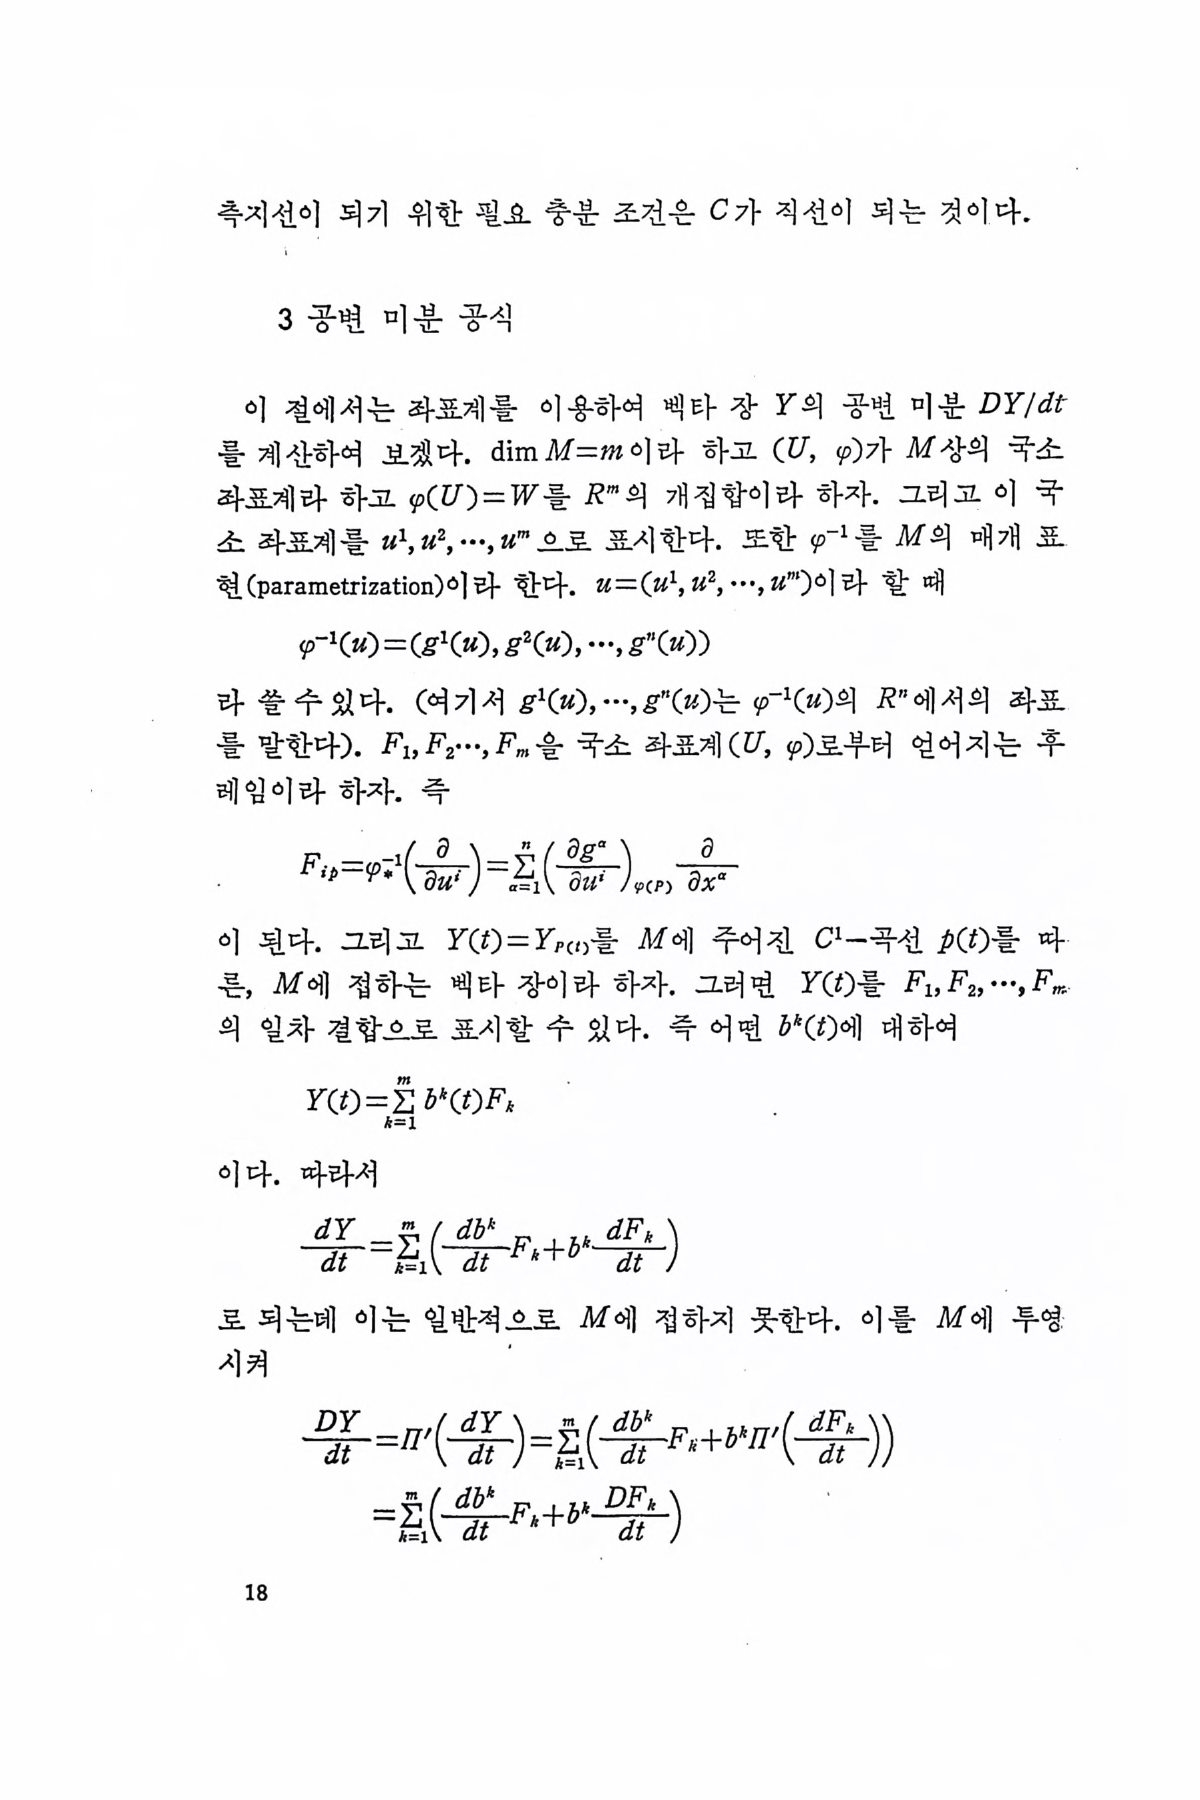 측지선이 되기 위한 필요 충분 조건은 C가 직선이 되는 것이다.
3 공변 미분 공식
이 절에서는 좌표계를 이용하여 벡타 장 Y의 공변 미분 DY/dt
를 계산하여 보겠다. dim M=m이라 하고 (U, φ)가 M상의 국소
좌표계라 하고 φ(U)=W를 Rᵐ의 개집합이라 하자. 그리고 이 국
소 좌표계를 u¹, u², ···, uᵐ으로 표시한다. 또한 φ⁻¹를 M의 매개 표
현(parametrization)이라 한다. u=(u¹, u², ···, uᵐ)이라 할 때
φ⁻¹(u)=(g¹(u), g²(u), ···, gⁿ(u))
라 쓸 수 있다. (여기서 g¹(u), ···, gⁿ(u)는 φ⁻¹(u)의 Rⁿ에서의 좌표
를 말한다). F₁, F₂···, Fₘ을 국소 좌표계(U, φ)로부터 얻어지는 후
레임이라 하자. 즉
F_{ip}=φ_*^{-1}(∂/∂uⁱ)=∑_{α=1}^{n}(∂g^α/∂uⁱ)_{φ(P)} ∂/∂x^α
이 된다. 그리고 Y(t)=Y_{P(t)}를 M에 주어진 C¹—곡선 p(t)를 따
른, M에 접하는 벡타 장이라 하자. 그러면 Y(t)를 F₁, F₂, ···, Fₘ
의 일차 결합으로 표시할 수 있다. 즉 어떤 bᵏ(t)에 대하여
Y(t)=∑_{k=1}^{m} bᵏ(t)Fₖ
이다. 따라서
dY/dt=∑_{k=1}^{m}(dbᵏ/dt Fₖ+bᵏ dFₖ/dt)
로 되는데 이는 일반적으로 M에 접하지 못한다. 이를 M에 투영
시켜
DY/dt=Π′(dY/dt)=∑_{k=1}^{m}(dbᵏ/dt Fₖ+bᵏΠ′(dFₖ/dt))
=∑_{k=1}^{m}(dbᵏ/dt Fₖ+bᵏ DFₖ/dt)
18